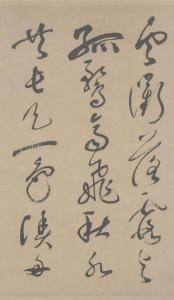 雲衢落霞與
孤鶩齊飛秋水
共長天一色漁舟